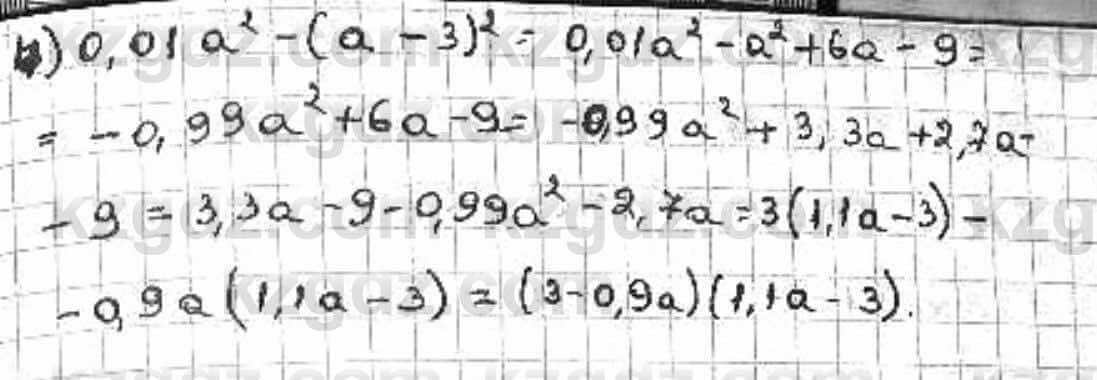 4) 0,01a² - (a - 3)² = 0,01a² - a² + 6a - 9 =
= -0,99a² + 6a - 9 = -0,99a² + 3,3a + 2,7a -
- 9 = 3,3a - 9 - 0,99a² - 2,7a = 3(1,1a - 3) -
- 0,9a(1,1a - 3) = (3 - 0,9a)(1,1a - 3).